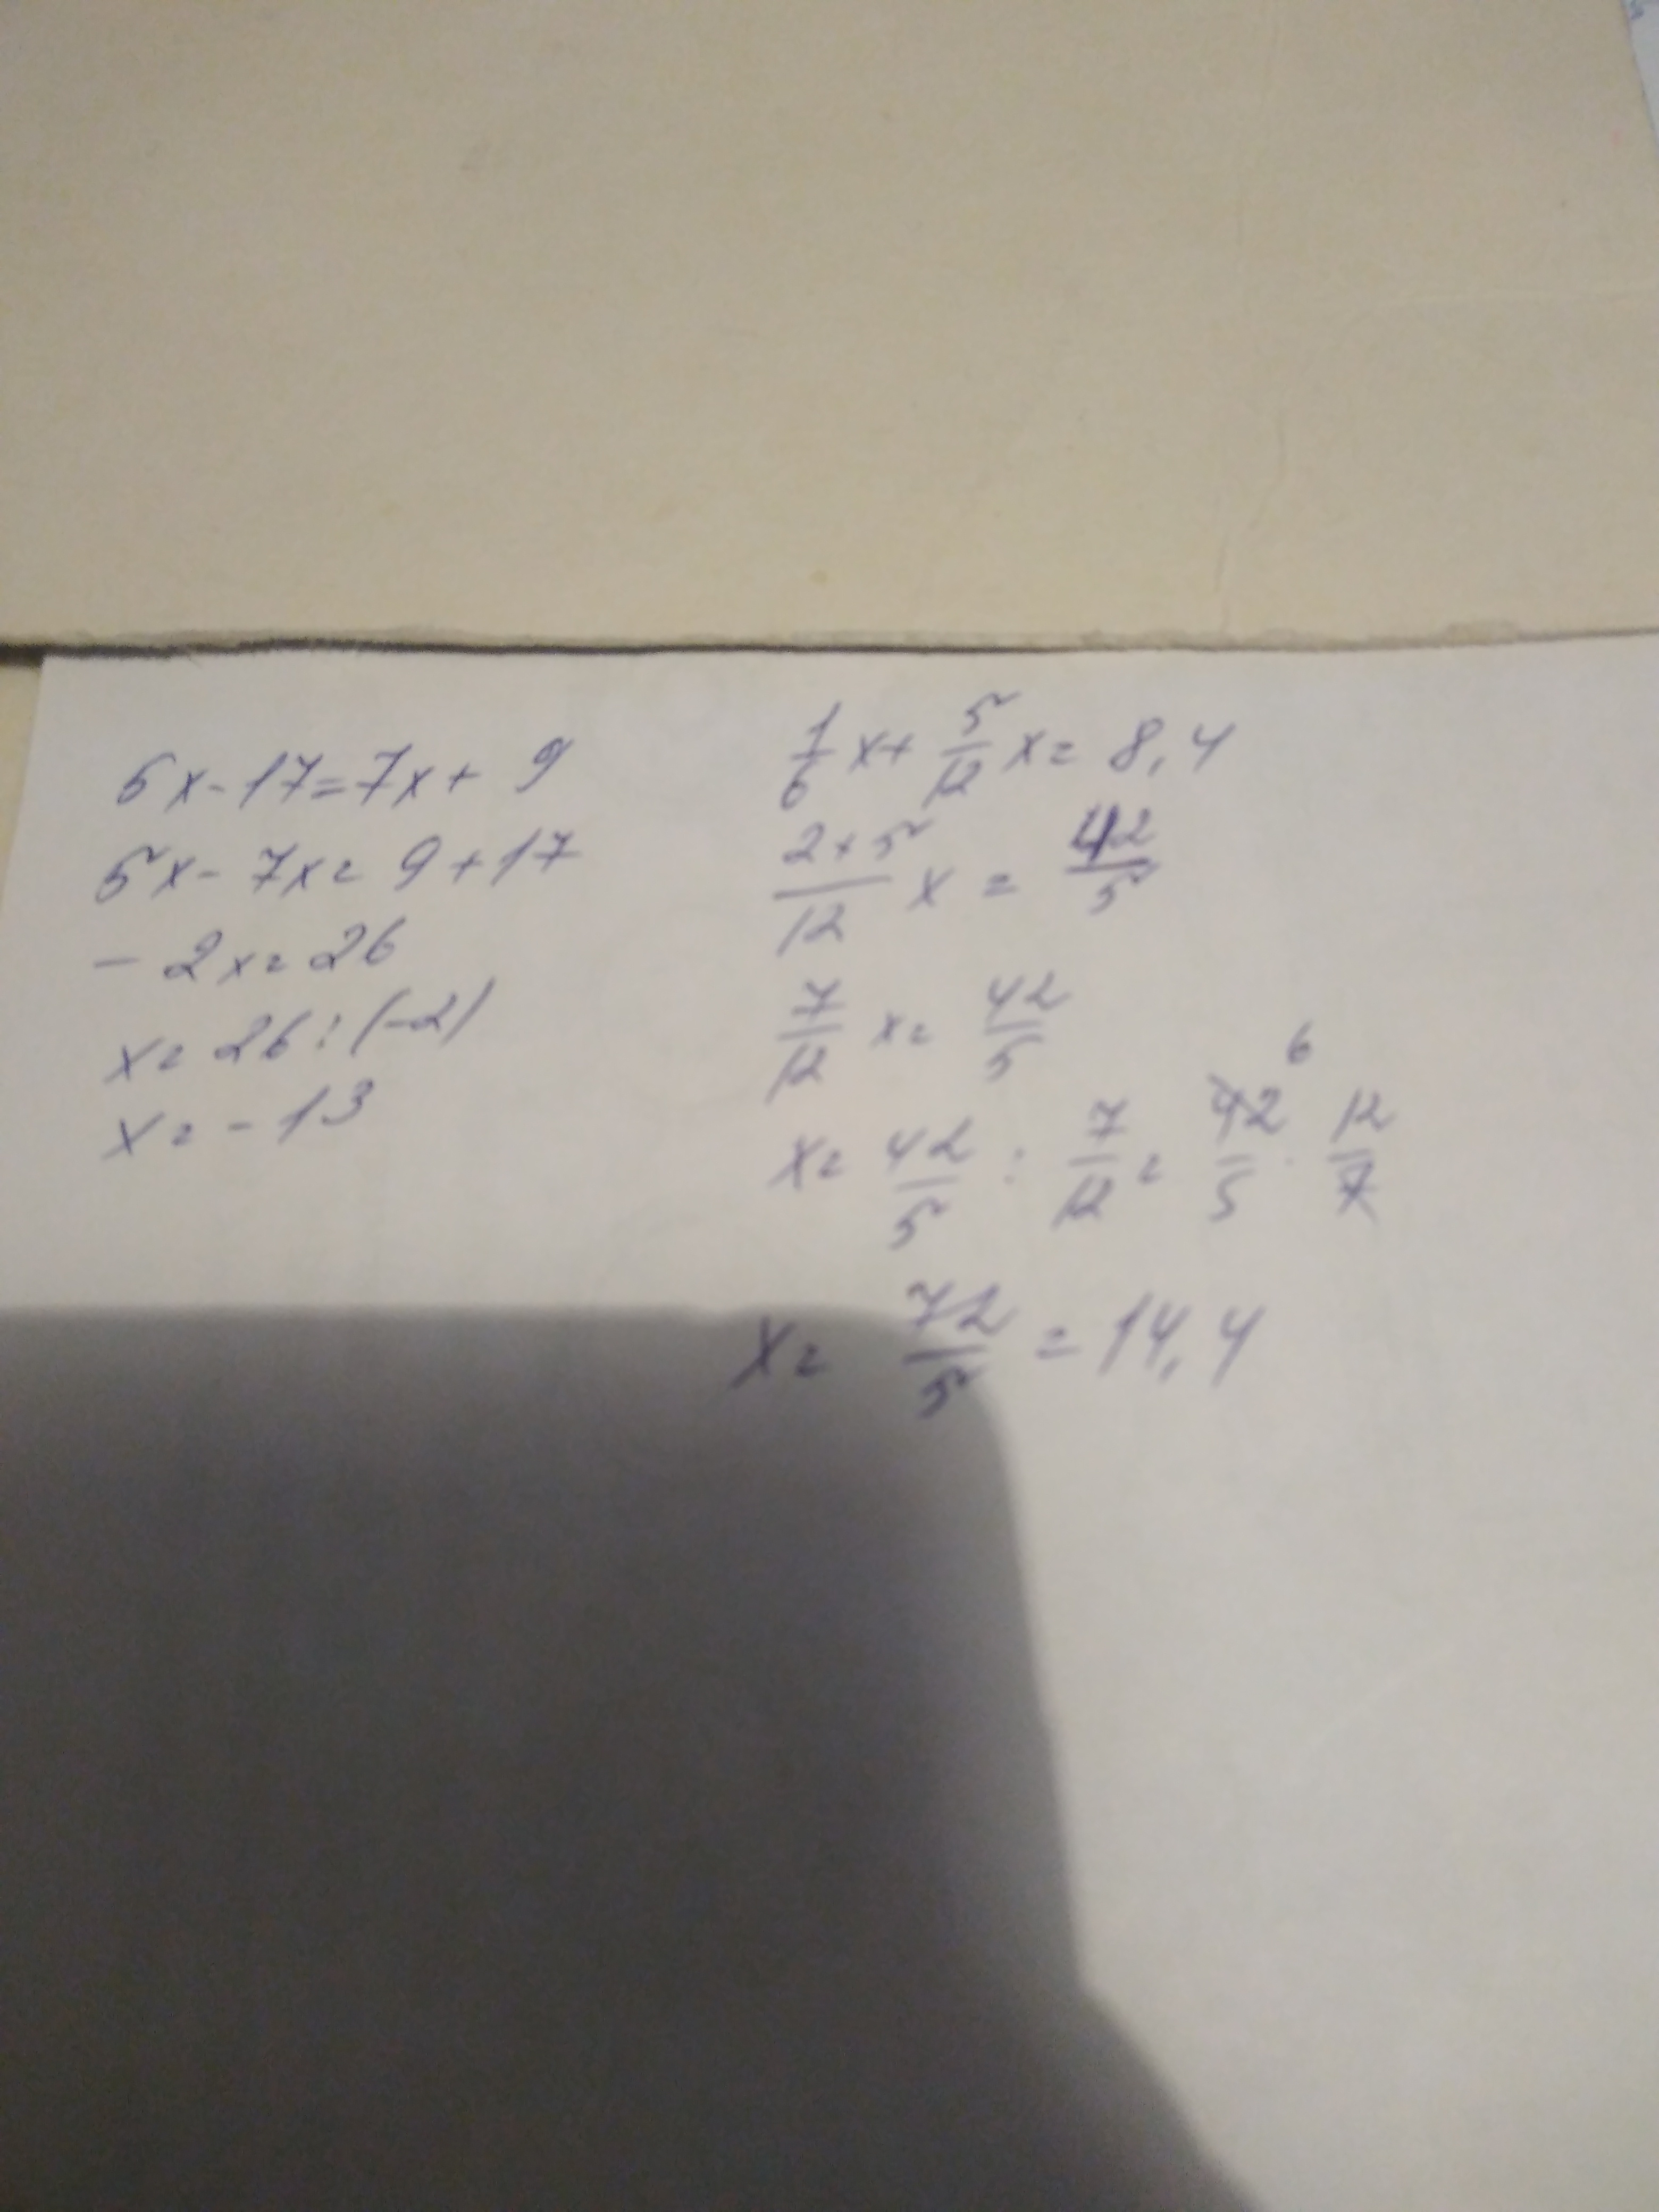 5x-17=7x+9
5x-7x=9+17
-2x=26
x=26:(-2)
x=-13
1/6 x+ 5/12 x=8,4
2+5/12 x = 42/5
7/12 x= 42/5
x= 42/5 : 7/12 = 42/5 · 12/7
6
x= 72/5 = 14,4